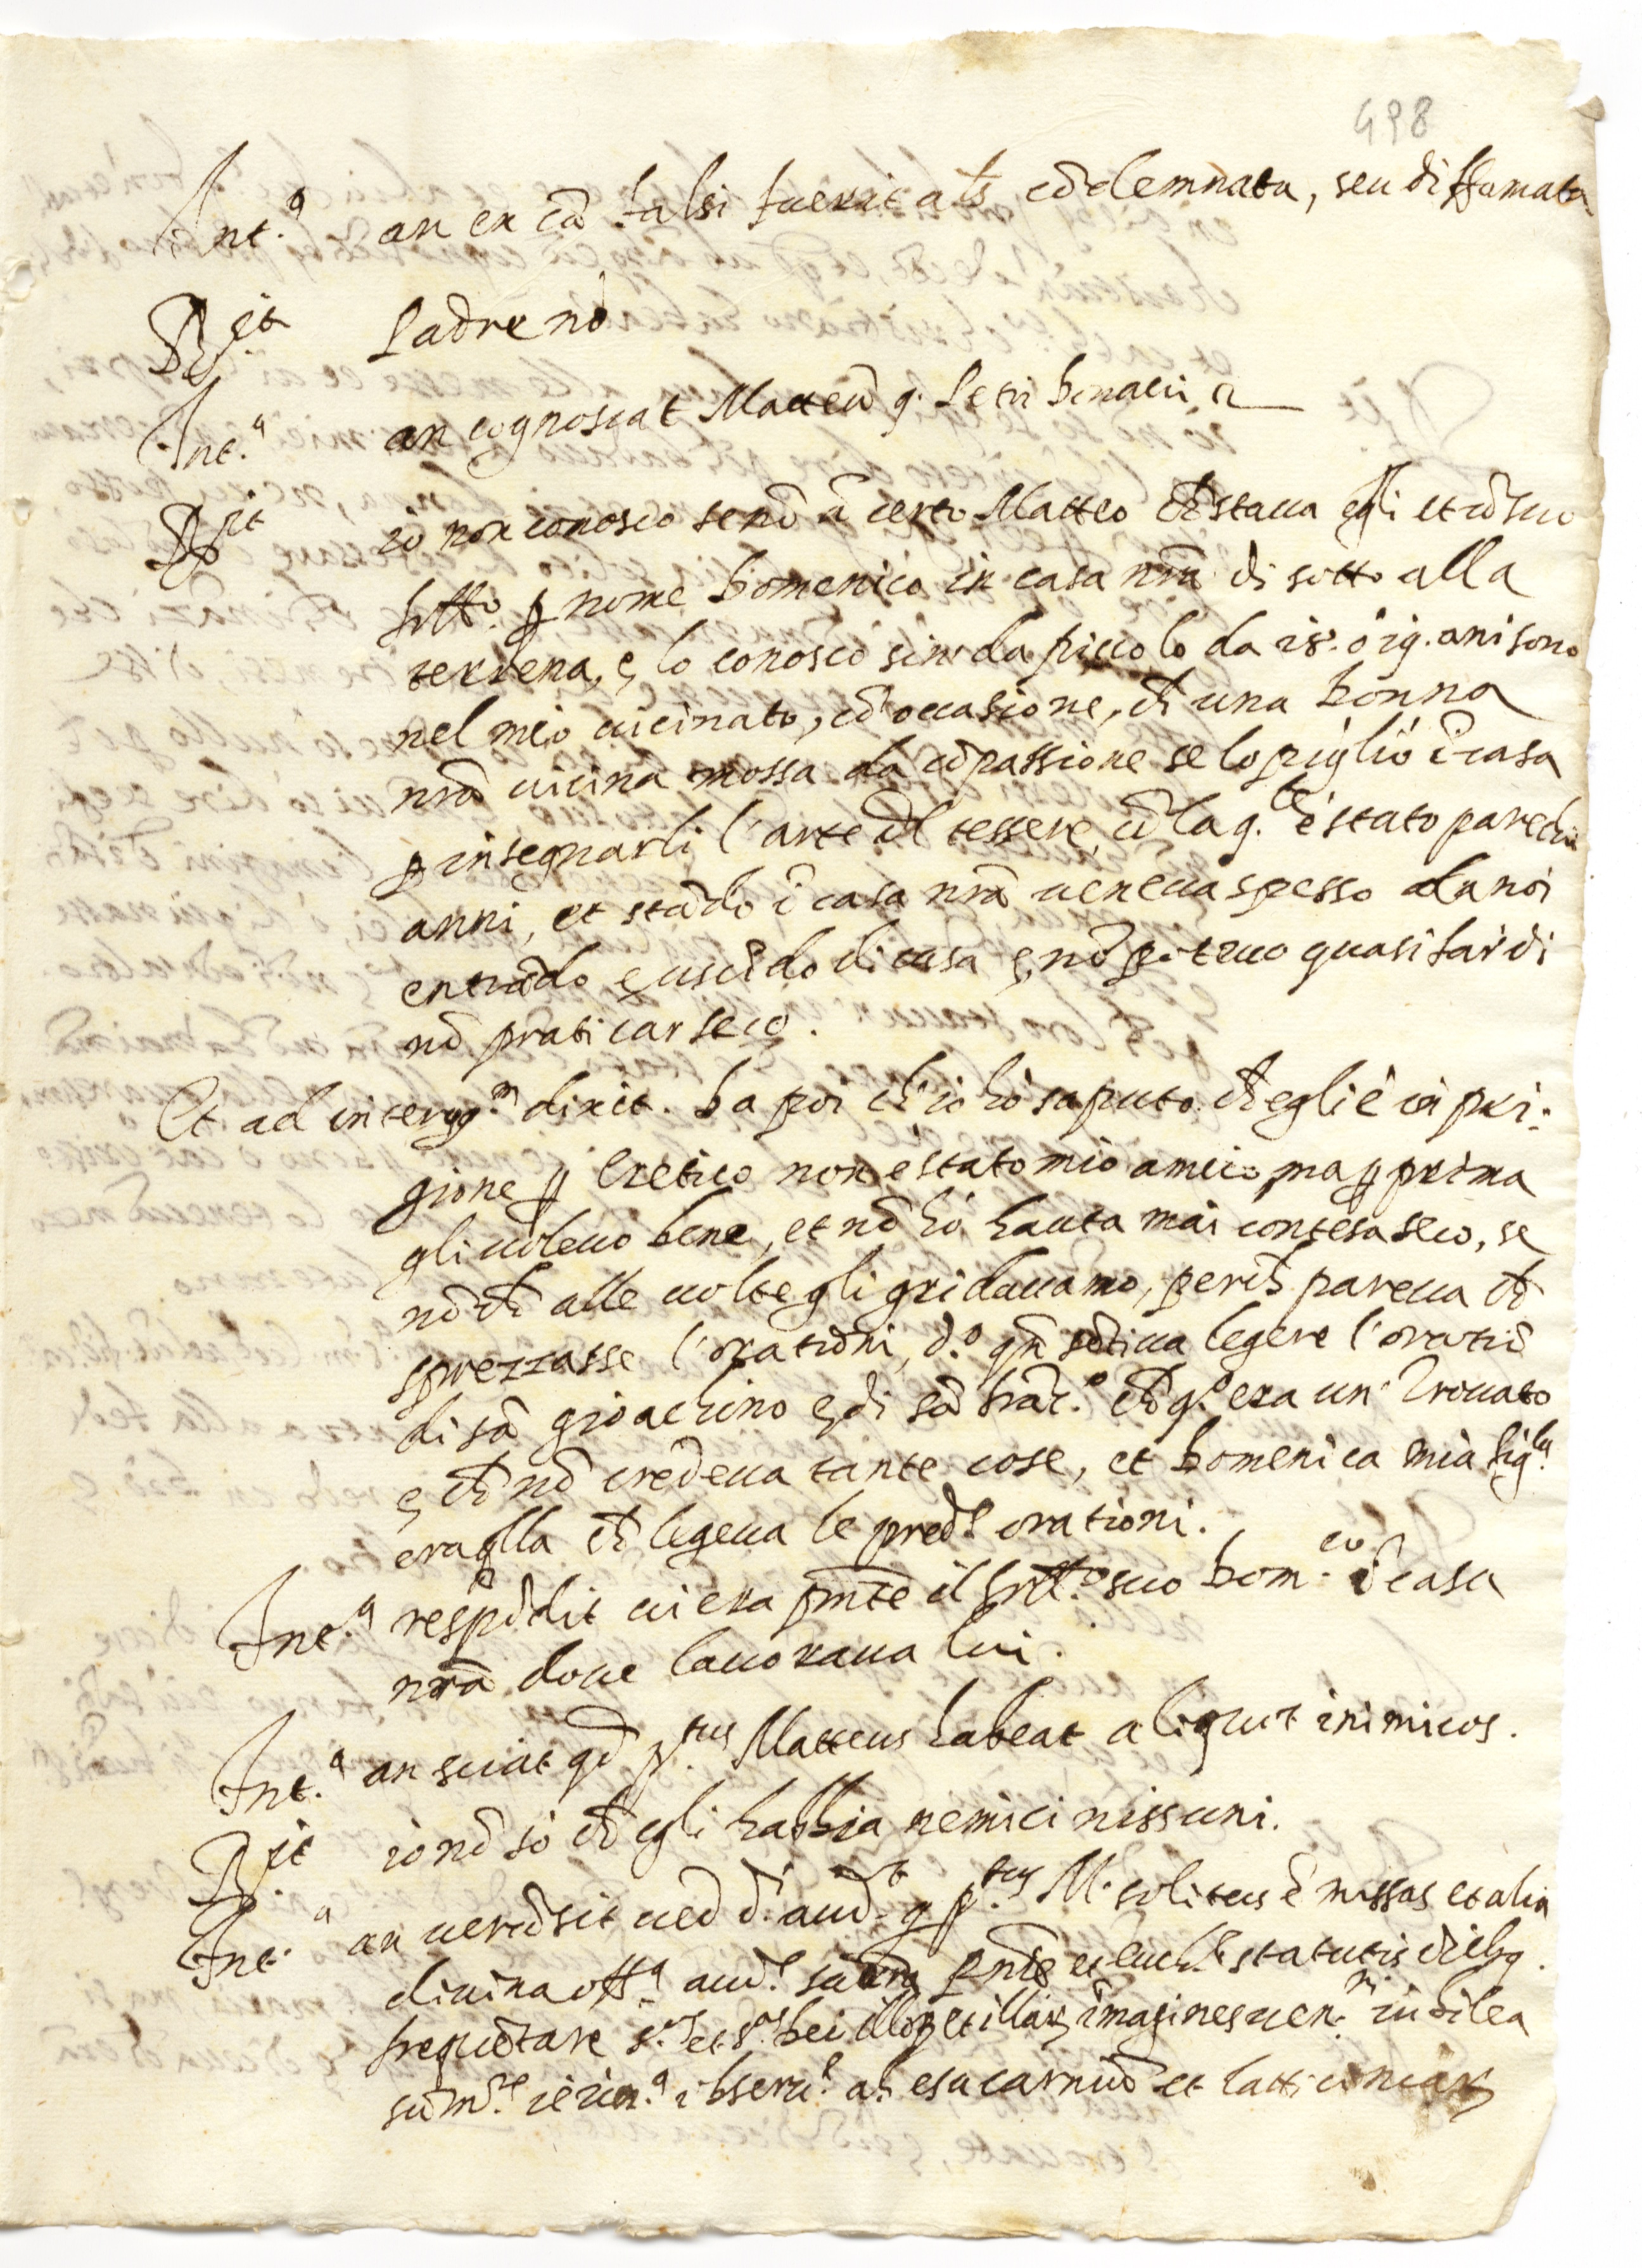 498
Int.ª an ex cã falsi fuerit als cõdemnata, seu diffamata
R.it Padre nõ
Int.ª an cognoscat Matteũ q. Petri
R.it io non conosco senõ ũ certo Matteo chẽ staua egli et cõ suo
fr̃ello p nome Domenico in casa nr̃a di sotto alla
terrena, e lo conosco sin da piccolo da 18. ò 19. anni sono
nel mio uicinato, cõ occasione, chẽ una Donna
nr̃a uicina mossa da cõpassione se lo pigliò ĩ casa
p insegnarli l'arte dl tessere, cõ la q.le è stato parechi
anni, et stãdo ĩ casa nr̃a ueneua spesso da noi
entrãdo e uscẽdo di casa e nõ poteuo quasi far di
nõ praticar seco.
Et ad interrog.m dixit. Da poi ch'io hò saputo chẽ egli è in pri:
gione p Eretico non è stato mio amico, ma p prima
gli uoleuo bene, et nõ hò hauta mai contesa seco, se
nõ chẽ alle uolte gli gridauamo, perchẽ pareua chẽ
sprezzasse l'orationi, d.º qñ sẽtiua legere l'oratiõ
di sã gioachino e di sã frãc.º chẽ q.º era un trouato
e chẽ nõ credeua tante cose, et Domenica mia fig.la
era q̃lla chẽ legeua le pred.e orationi.
Int.ª respõdit ui era pñte il fr̃ello suo Dom.co ĩ casa
nr̃a doue lauoraua lui.
Int.ª an sciat qd p.tus Matteus habeat aliquot inimicos.
R.it io nõ sò chẽ egli habbia nemici nissuni.
Int.ª an uerũ sit uel d. aud. q p.tus M. solitus ẽ missas et alia
diuina off.ª aud.e statutis diebq.
frequẽtare imagines uen. iubilea
ab esu carniũ et latticiniar